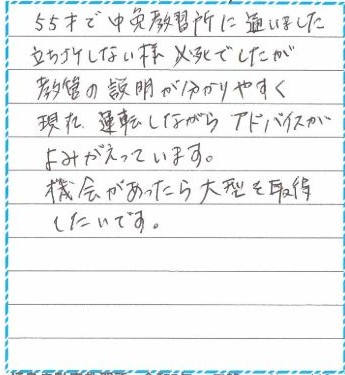 55才で中免教習所に通いました
立ちゴケしない様 必死でしたが
教官の説明が分かりやすく
現在、運転しながらアドバイスが
よみがえっています。
機会があったら大型を取得
したいです。